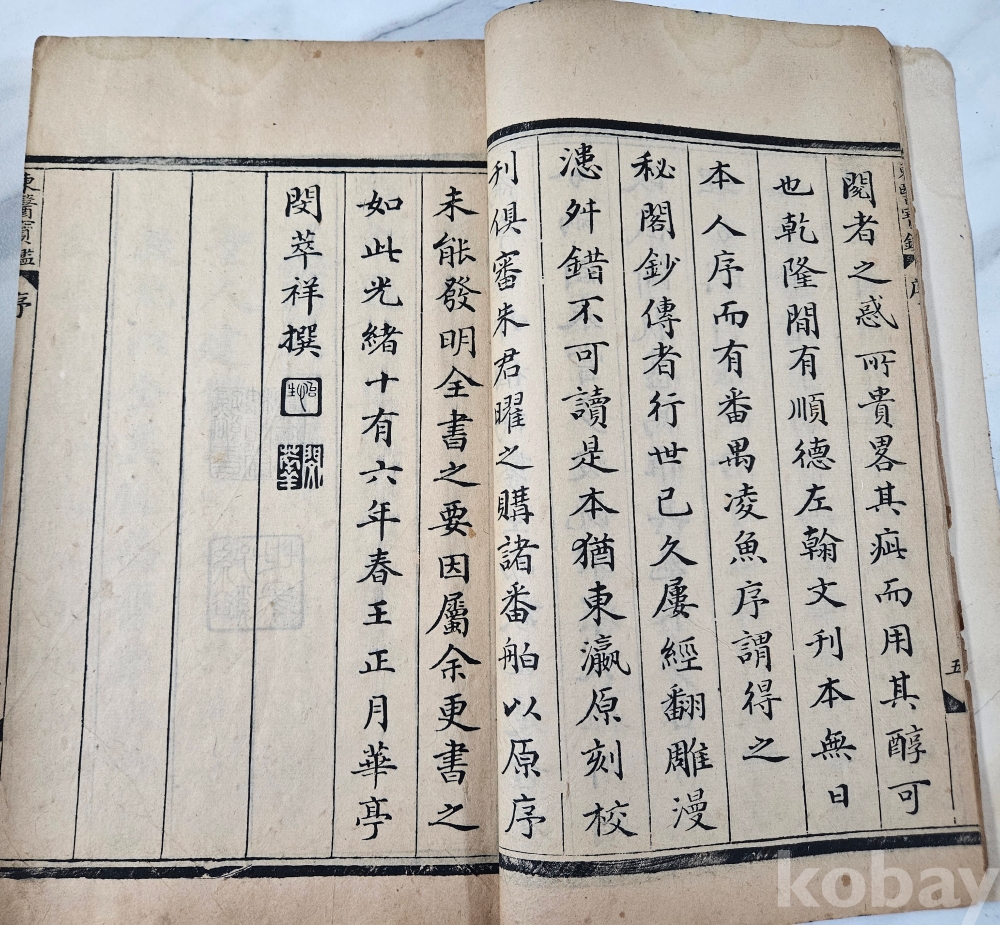 閱者之惑所貴畧其疵而用其醇可
也乾隆間有順德左翰文刊本無日
本人序而有番禺凌魚序謂得之
秘閣鈔傳者行世已久屢經翻雕漫
漶舛錯不可讀是本猶東瀛原刻校
刊俱審朱君曜之購諸番舶以原序
未能發明全書之要因屬余更書之
如此光緒十有六年春王正月華亭
閔萃祥撰
東醫寶鑑
序
五
kobay